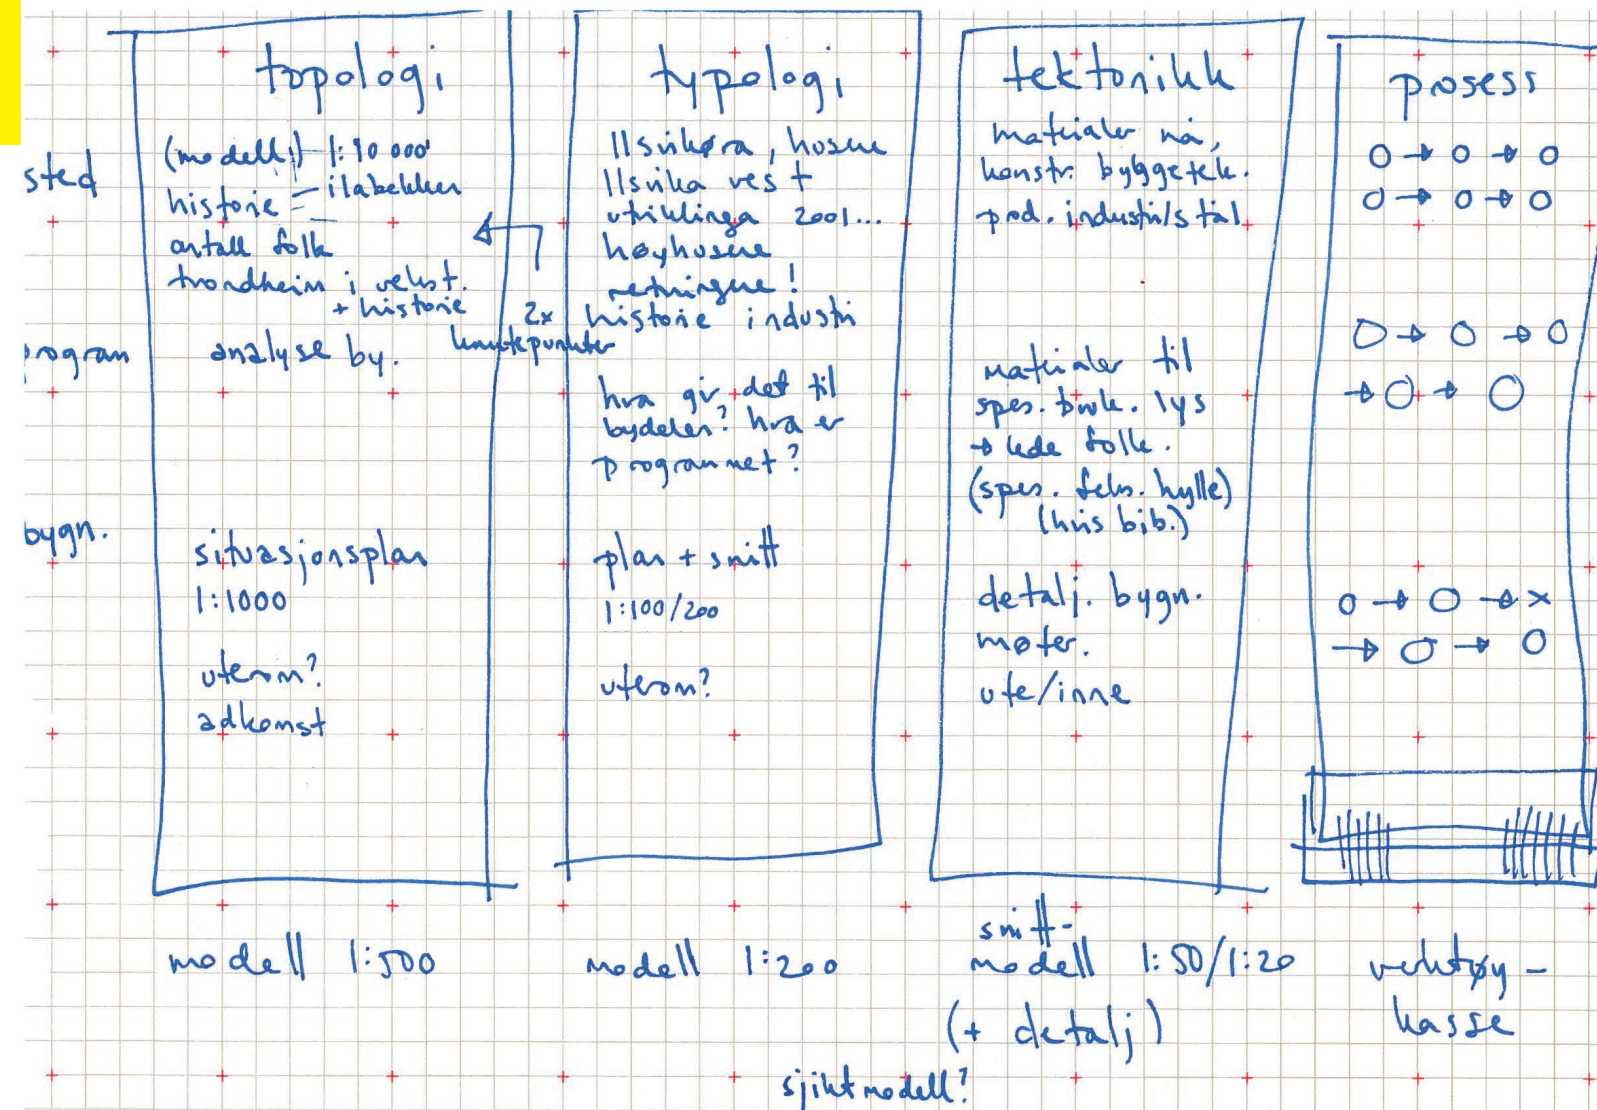 topologi
(modell) 1:10 000
historie = ilabekken
antall folk
trondheim i vekst.
+ historie
analyse by.
situasjonsplan
1:1000
uterom?
adkomst
modell 1:500
sted
program
bygn.
2x
knutepunkter
typologi
Ilsvikøra, husene
Ilsvika vest
utviklinga 2001...
høyhusene
retningene!
historie industri
hva gir det til
bydelen? hva er
programmet?
plan + snitt
1:100/200
uterom?
modell 1:200
tektonikk
materialer nå,
konstr. byggetek.
prod. industri/stål
materialer til
spes. bruk. lys
→ lede folk.
(spes. feks. hylle)
(hvis bib.)
detalj. bygn.
møter.
ute/inne
snitt-
modell 1:50/1:20
(+ detalj)
sjiktmodell?
prosess
verktøy-
kasse